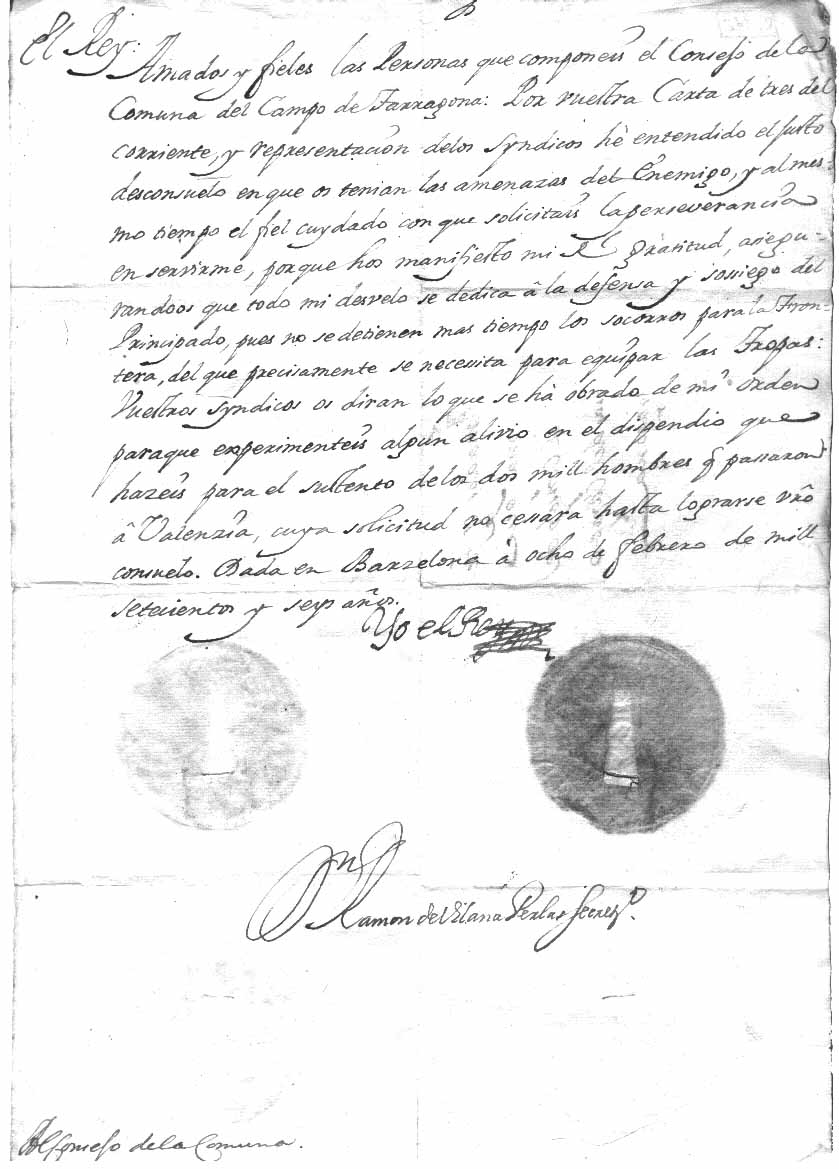 El Rey:
Amados y fieles las Personas que componeis el Consejo de la
Comuna del Campo de Tarragona: Por vuestra Carta de tres del
corriente, y representacion delos Syndicos hè entendido el justo
desconsuelo en que os tenian las amenazas del Enemigo, y al mes-
mo tiempo el fiel cuydado con que solicitais la perseverancia
en servirme, porque hos manifiesto mi Rl gratitud, asegu-
randoos que todo mi desvelo se dedica â la defensa y sossiego del
Principado, pues no se detienen mas tiempo los socorros para la Fron-
tera, del que precisamente se necessita para equipar las Tropas:
Vuestros Syndicos os diran lo que se hà obrado de mi orden
paraque experimenteis algun alivio en el dispendio que
hazeis para el sustento delos dos mill hombres q̃ passaron
â Valenzia, cuya solicitud no cessara hasta lograrse vrõ
consuelo. Dada en Barzelona à ocho de febrero de mill
setecientos y seys años.
Yo el Rey
Dn Ramon de Vilana Perlas Secret.º
Al Consejo de la Comuna.